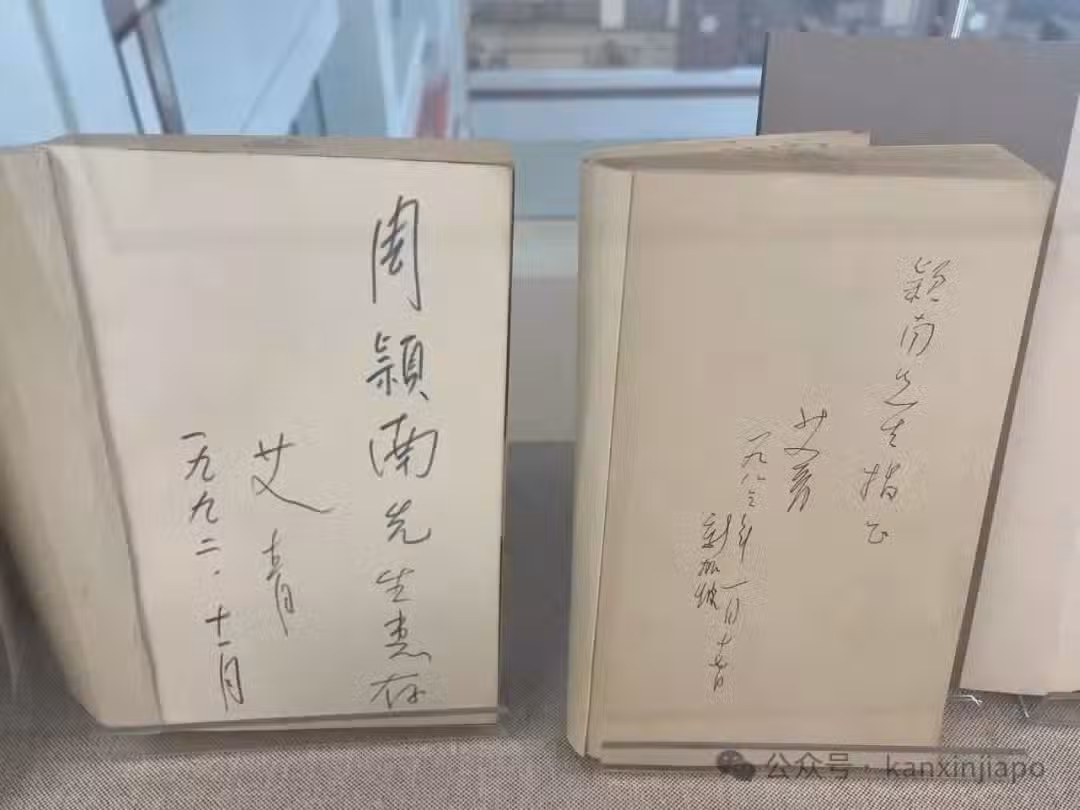 周颖南先生惠存
艾青
一九九二.十一月
颖南先生指正
艾青
一九八三年一月十六日
新加坡
公众号·kanxinjiapo